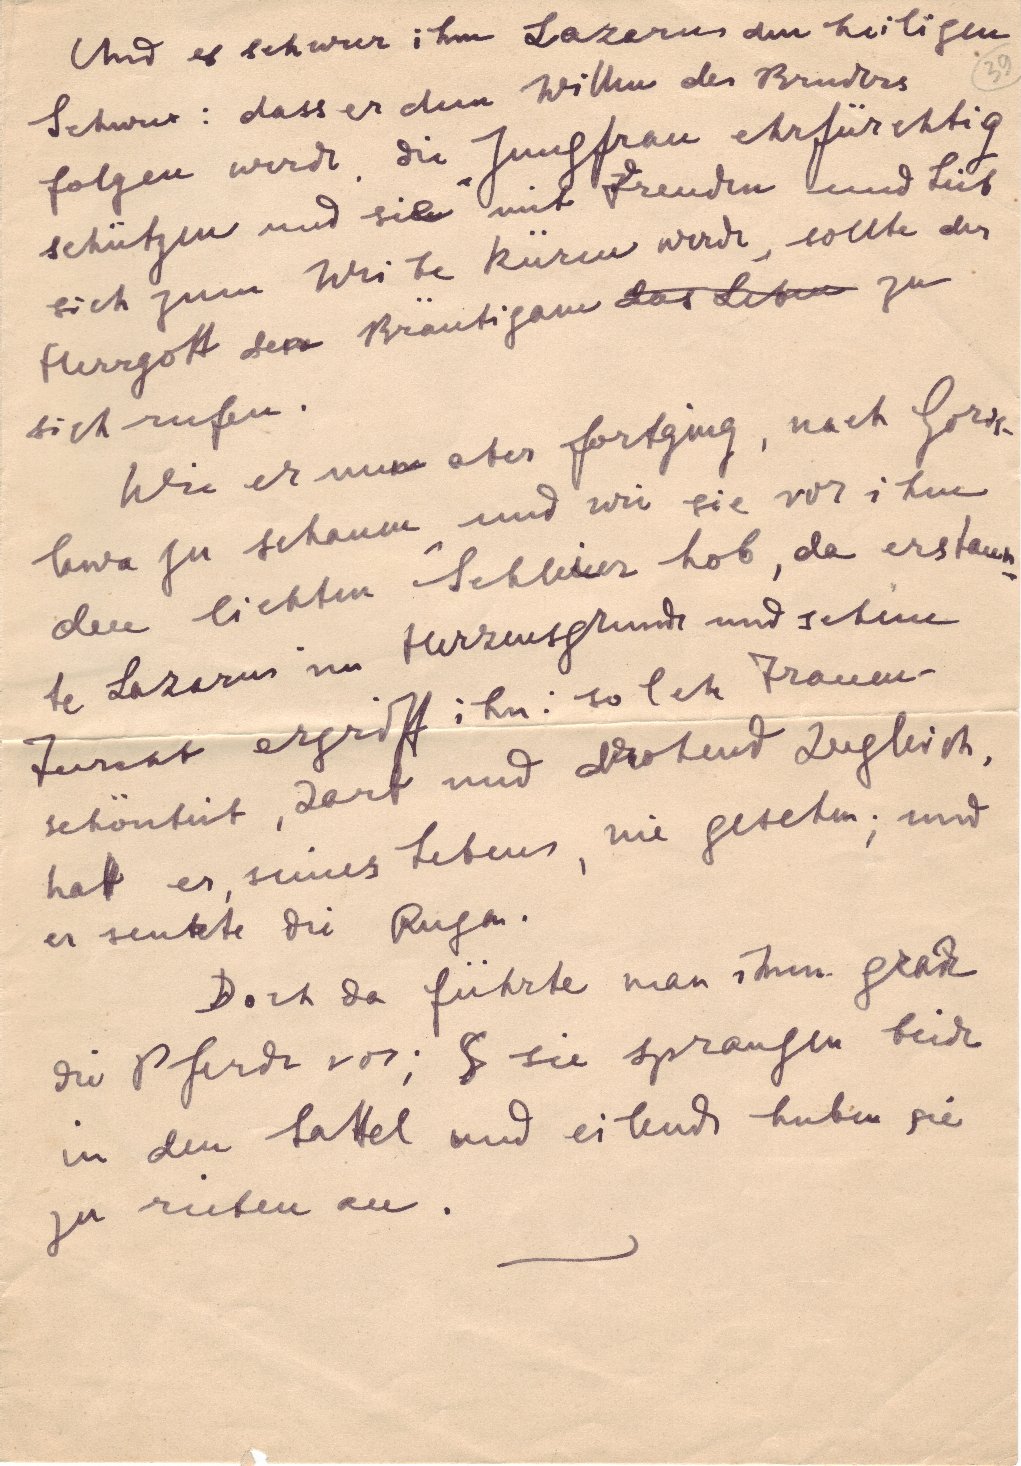 Und es schwur ihm Lazarus den heiligen
39
Schwur: dass er dem Willen des Bruders
folgen werde, die Jungfrau ehrfürchtig
schützen und sie mit Freuden und Lieb
sich zum Weibe küren werde, sollte der
Herrgott den Bräutigam das Leben zu
sich rufen.
Wie er nun aber fortging, nach Goris-
lawa zu schauen und wie sie vor ihm
den lichten Schleier hob, da erstaun-
te Lazarus im Herzensgrunde und scheue
Furcht ergriff ihn: solch Frauen-
schönheit, zart und drohend zugleich,
hat er, seines Lebens, nie gesehen; und
er senkte die Augen.
Doch da führte man ihnen grade
die Pferde vor; sie sprangen beide
in den Sattel und eilends huben sie
zu reiten an.